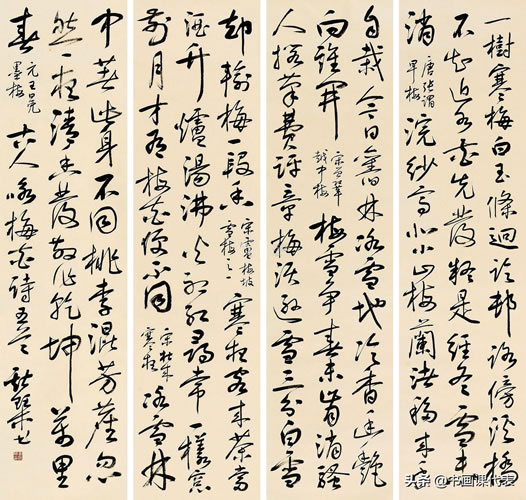 一樹寒梅白玉條迥臨邨路傍谿橋
不知近水花先發疑是經冬雪未
消 唐張謂早梅 浣紗亭北小山梅蘭渚移來手
自栽今日舊林冰雪地冷香幽艷
向誰開 宋曾鞏越中梅 梅雪爭春未肯 騷
人擱筆費評章梅須遜雪三分白雪
卻輸梅一段香 宋盧梅坡雪梅之一 寒夜客來茶當
酒竹爐湯沸火初紅尋常一樣窗
前月才有梅花便不同 宋杜耒寒夜 冰雪林
中著此身不同桃李混芳塵忽
然一夜清香發散作乾坤萬里
春 元王冕墨梅 古人咏梅花詩五首
头条 @书画课代表